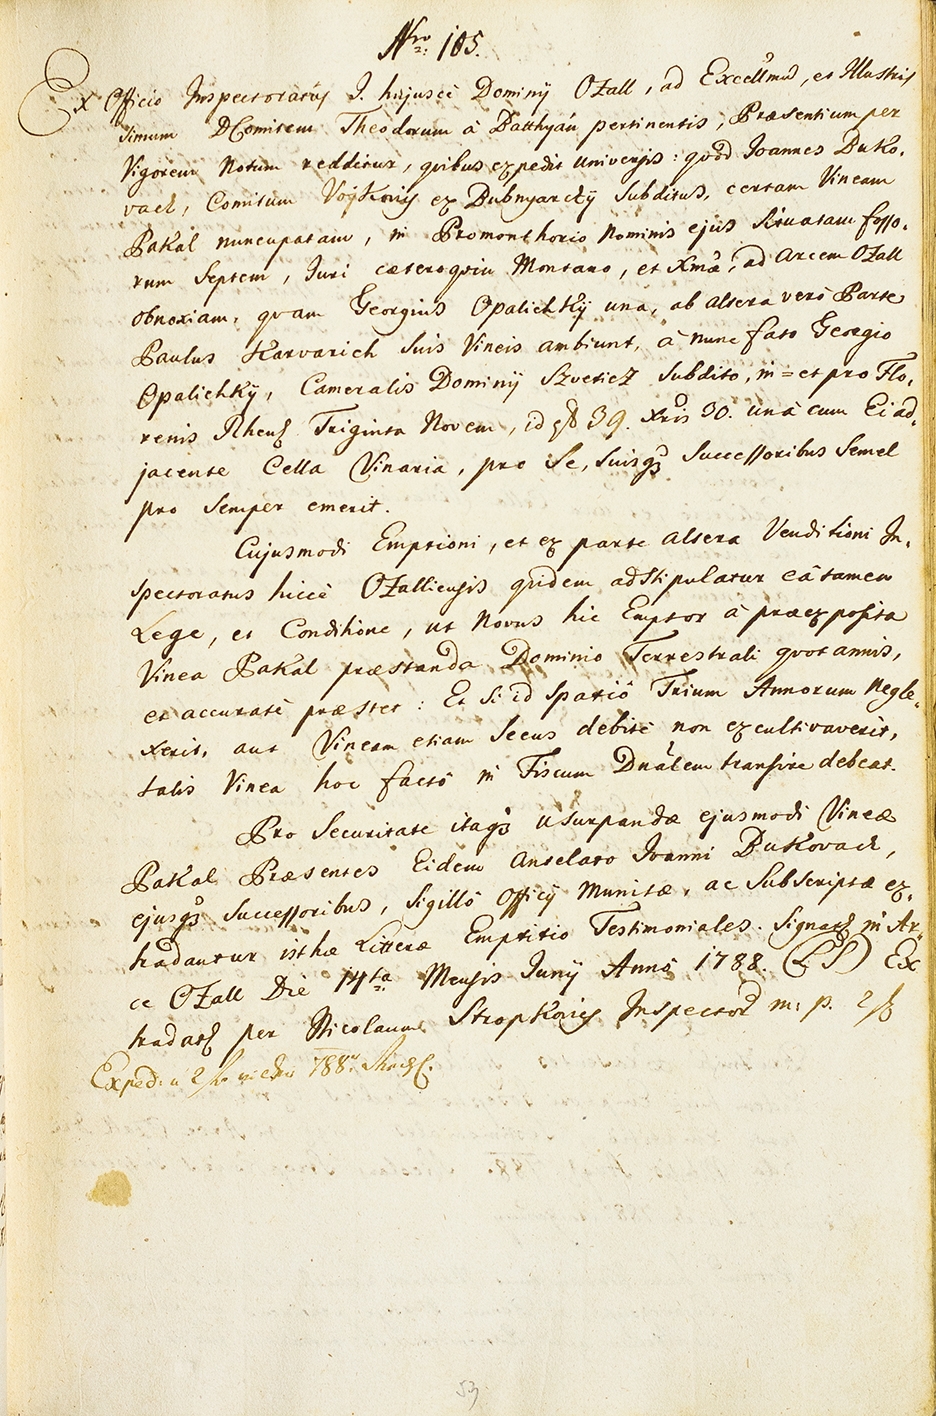 Nro 105.
Ex Officio Inspectoratûs I. hujusce Dominij Ozall, ad Excellmum, et Illustris
simum D Comitem Theodorum à Batthyán pertinentis, Præsentium per
Vigorem Notum redditur, quibus expedit universis: quòd Joannes Buko-
vach, Comitum Vojkovij ex Dubnyarchij Subditus, certam Vineam
Pakal nuncupatam, in Promonthorio Nominis ejus Situatam fosso-
rum Septem, Juri cæteroquin Montano, et Xmæ, ad Arcem Ozall
obnoxiam, quam Georgius Opalichkÿ una, ab altera verò Parte
Paulus Harvarich Suis Vineis ambiunt, à nunc fato Georgio
Opalichkÿ, Cameralis Dominij Szveticz Subdito, in = et pro Flo-
renis Rhens Triginta Novem, id est 39. Xris 30. unà cum Ei ad-
jacente Cella Vinaria, pro Se, Suisq Successoribus Semel
pro Semper emerit.
Cujusmodi Emptioni, et ex parte altera Venditioni In-
spectoratus hicce Ozalliensis quidem adstipulatur eâ tamen
Lege, et Conditione, ut Novus hic Emptor à præexposita
Vinea Pakal præstanda Dominio Terrestrali quotannis,
et accuratè præstet: Et Si id Spatiô Trium Annorum Negle-
xerit, aut Vineam etiam Secus debitè non excultivaverit,
talis Vinea hoc factô in Fiscum Dnalem transire debeat.
Pro Securitate itaq usurpandæ ejusmodi Vineæ
Pakal Præsentes Eidem Antelato Joanni Bukovach,
ejusq Successoribus, Sigillô Officij Munitæ, ac Subscriptæ ex-
tradantur isthæ Litteræ Emptitio Testimoniales. Signat in Ar-
ce Ozall Die 14ta Mensis Junij Annô 1788. (LS) Ex
tradat per Nicolaum Stropkovij Inspector m: p.
53